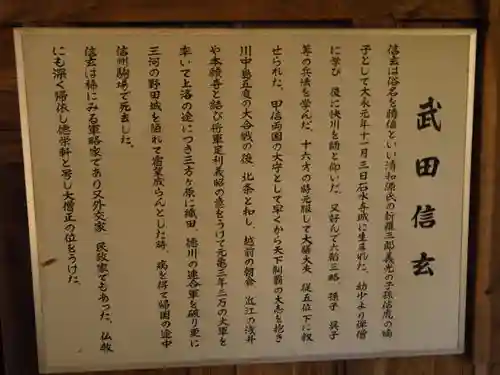 武田信玄
信玄は俗名を晴信といい清和源氏の新羅三郎義光の子孫信虎の嫡
子として大永元年十一月三日石水寺城に生まれた。幼少より禅僧
に学び 後に快川を師と仰いだ。又好んで六韜三略、孫子 呉子
等の兵法を学んだ。十六才の時元服して大膳大夫 従五位下に叙
せられた。甲信両国の大守として早くから天下制覇の大志を抱き
川中島五度の大合戦の後 北条と和し、越前の朝倉 近江の浅井
や本願寺と結び将軍足利義昭の意をうけて元亀三年三万の大軍を
率いて上洛の途につき三方ヶ原に織田、徳川の連合軍を破り更に
三河の野田城を陥れて宿業成らんとした時、病を得て帰国の途中
信州駒場で死去した。
信玄は稀にみる軍略家であり又外交家 民政家でもあった。仏教
にも深く帰依し徳栄軒と号し大僧正の位をうけた。